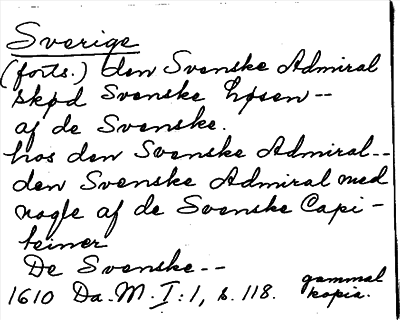 Sverige
(forts.) den Svenske Admiral
skød Svenske løsen--
af de Svenske.
hos den Svenske Admiral--
den Svenske Admiral med
nogle af de Svenske Capi-
teiner
De Svenske--
1610 Da. M. I:1, s. 118. gammal
kopia.